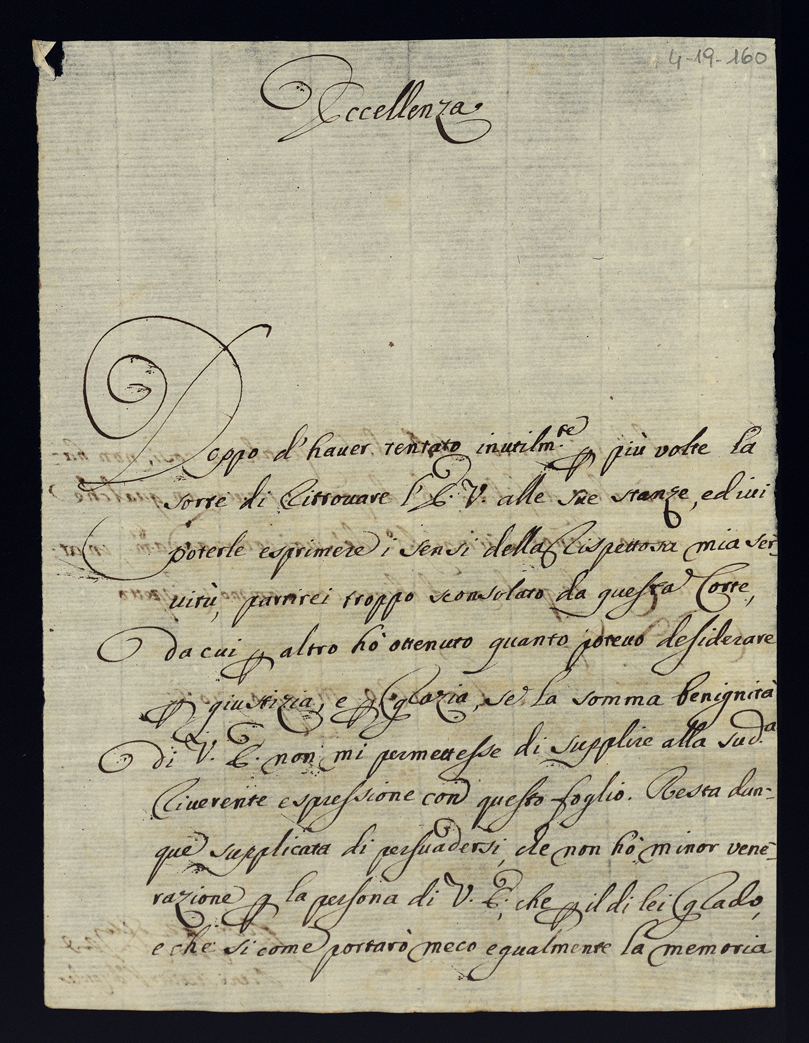 4-19-160
Eccellenza
Doppo d'hauer tentato inutilm.te p più volte la
sorte di ritrouare l'E. V. alle sue stanze, ed iui
poterle esprimere i sensi della rispettosa mia ser-
uitù, partirei troppo sconsolato da questa Corte,
da cui p altro hò ottenuto quanto poteuo desiderare
p giustizia, e p grazia, se la somma benignità
di V. E. non mi permettesse di supplire alla sud.a
riuerente espressione con questo foglio. Resta dun-
que supplicata di persuadersi, che non hò minor vene-
razione p la persona di V. E., che p il di lei grado,
e che si come portarò meco egualmente la memoria